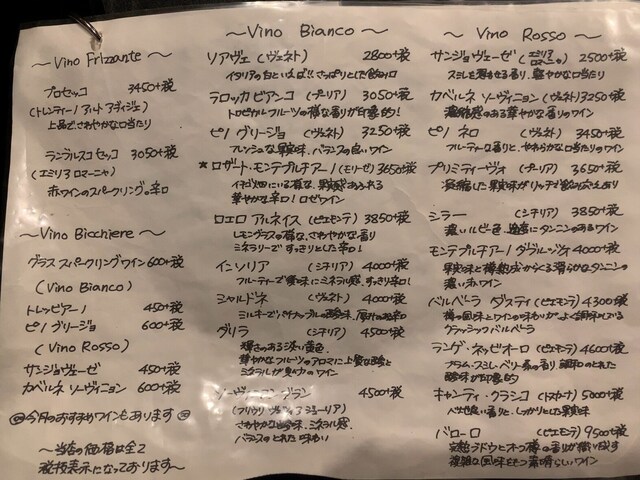 ～Vino Frizzante～
プロセッコ 3450+税
(トレンティーノ アルト アディジェ)
上品でさわやかな口当たり
ランブルスコ セッコ 3050+税
(エミリア ロマーニャ)
赤ワインのスパークリング。辛口
～Vino Bicchiere～
グラス スパークリングワイン 600+税
(Vino Bianco)
トレッビアーノ 450+税
ピノ グリージョ 600+税
(Vino Rosso)
サンジョヴェーゼ 450+税
カベルネ ソーヴィニヨン 600+税
今月のおすすめワインもあります
～当店の価格は全て
税抜表示になっております～
～Vino Bianco～
ソアヴェ (ヴェネト) 2800+税
イタリアの白といえば!! さっぱりとした飲み口
ラロッカ ビアンコ (プーリア) 3050+税
トロピカルフルーツの様な香りが印象的!
ピノ グリージョ (ヴェネト) 3250+税
フレッシュな果実味、バランスの良いワイン
*ロザート・モンテプルチアーノ (モリーゼ) 3650+税
イチゴの様な、果実感あふれる
華やかな辛口!ロゼワイン
ロエロ アルネイス (ピエモンテ) 3850+税
レモングラスの様な、さわやかな香り
ミネラリーですっきりとした辛口!
インソリア (シチリア) 4000+税
フルーティーで酸味にミネラル感、すっきり辛口!
シャルドネ (ヴェネト) 4000+税
ミルキーでパイナップルの酸味、厚みのある辛口
グリラ (シチリア) 4500+税
輝きのある淡い黄色。
華やかなフルーツのアロマに上質な酸と
ミネラルが魅力のワイン
ソーヴィニヨン・ブラン 4500+税
(フリウリ ヴェネツィア ジューリア)
さわやかな風味、ミネラル感、
バランスのとれた味わい
～Vino Rosso～
サンジョヴェーゼ (エミリア ロマーニャ) 2500+税
スミレを思わせる香り、軽やかな口当たり
カベルネ ソーヴィニヨン (ヴェネト) 3250+税
濃縮感のある華やかな香りのワイン
ピノ ネロ (ヴェネト) 3450+税
フルーティーな香りと、やわらかな口当たりのワイン
プリミティーヴォ (プーリア) 3650+税
凝縮した果実味がリッチな飲み応えあり
シラー (シチリア) 3850+税
濃いルビー色、適度にタンニンのあるワイン
モンテプルチアーノ ダブルッツォ 4000+税
果実味と樽熟成からくる滑らかなタンニンの
濃い赤ワイン
バルベーラ ダスティ (ピエモンテ) 4300+税
樽の風味とワインの味わいがよく調和している
クラッシック バルベーラ
ランゲ・ネッビオーロ (ピエモンテ) 4600+税
プラム、スミレ、ベリー系の香り 調和のとれた
酸味が印象的
キャンティ・クラシコ (トスカーナ) 5000+税
心地良い香りと、しっかりとした果実味
バローロ (ピエモンテ) 9500+税
複雑な風味をもつ素晴らしいワイン